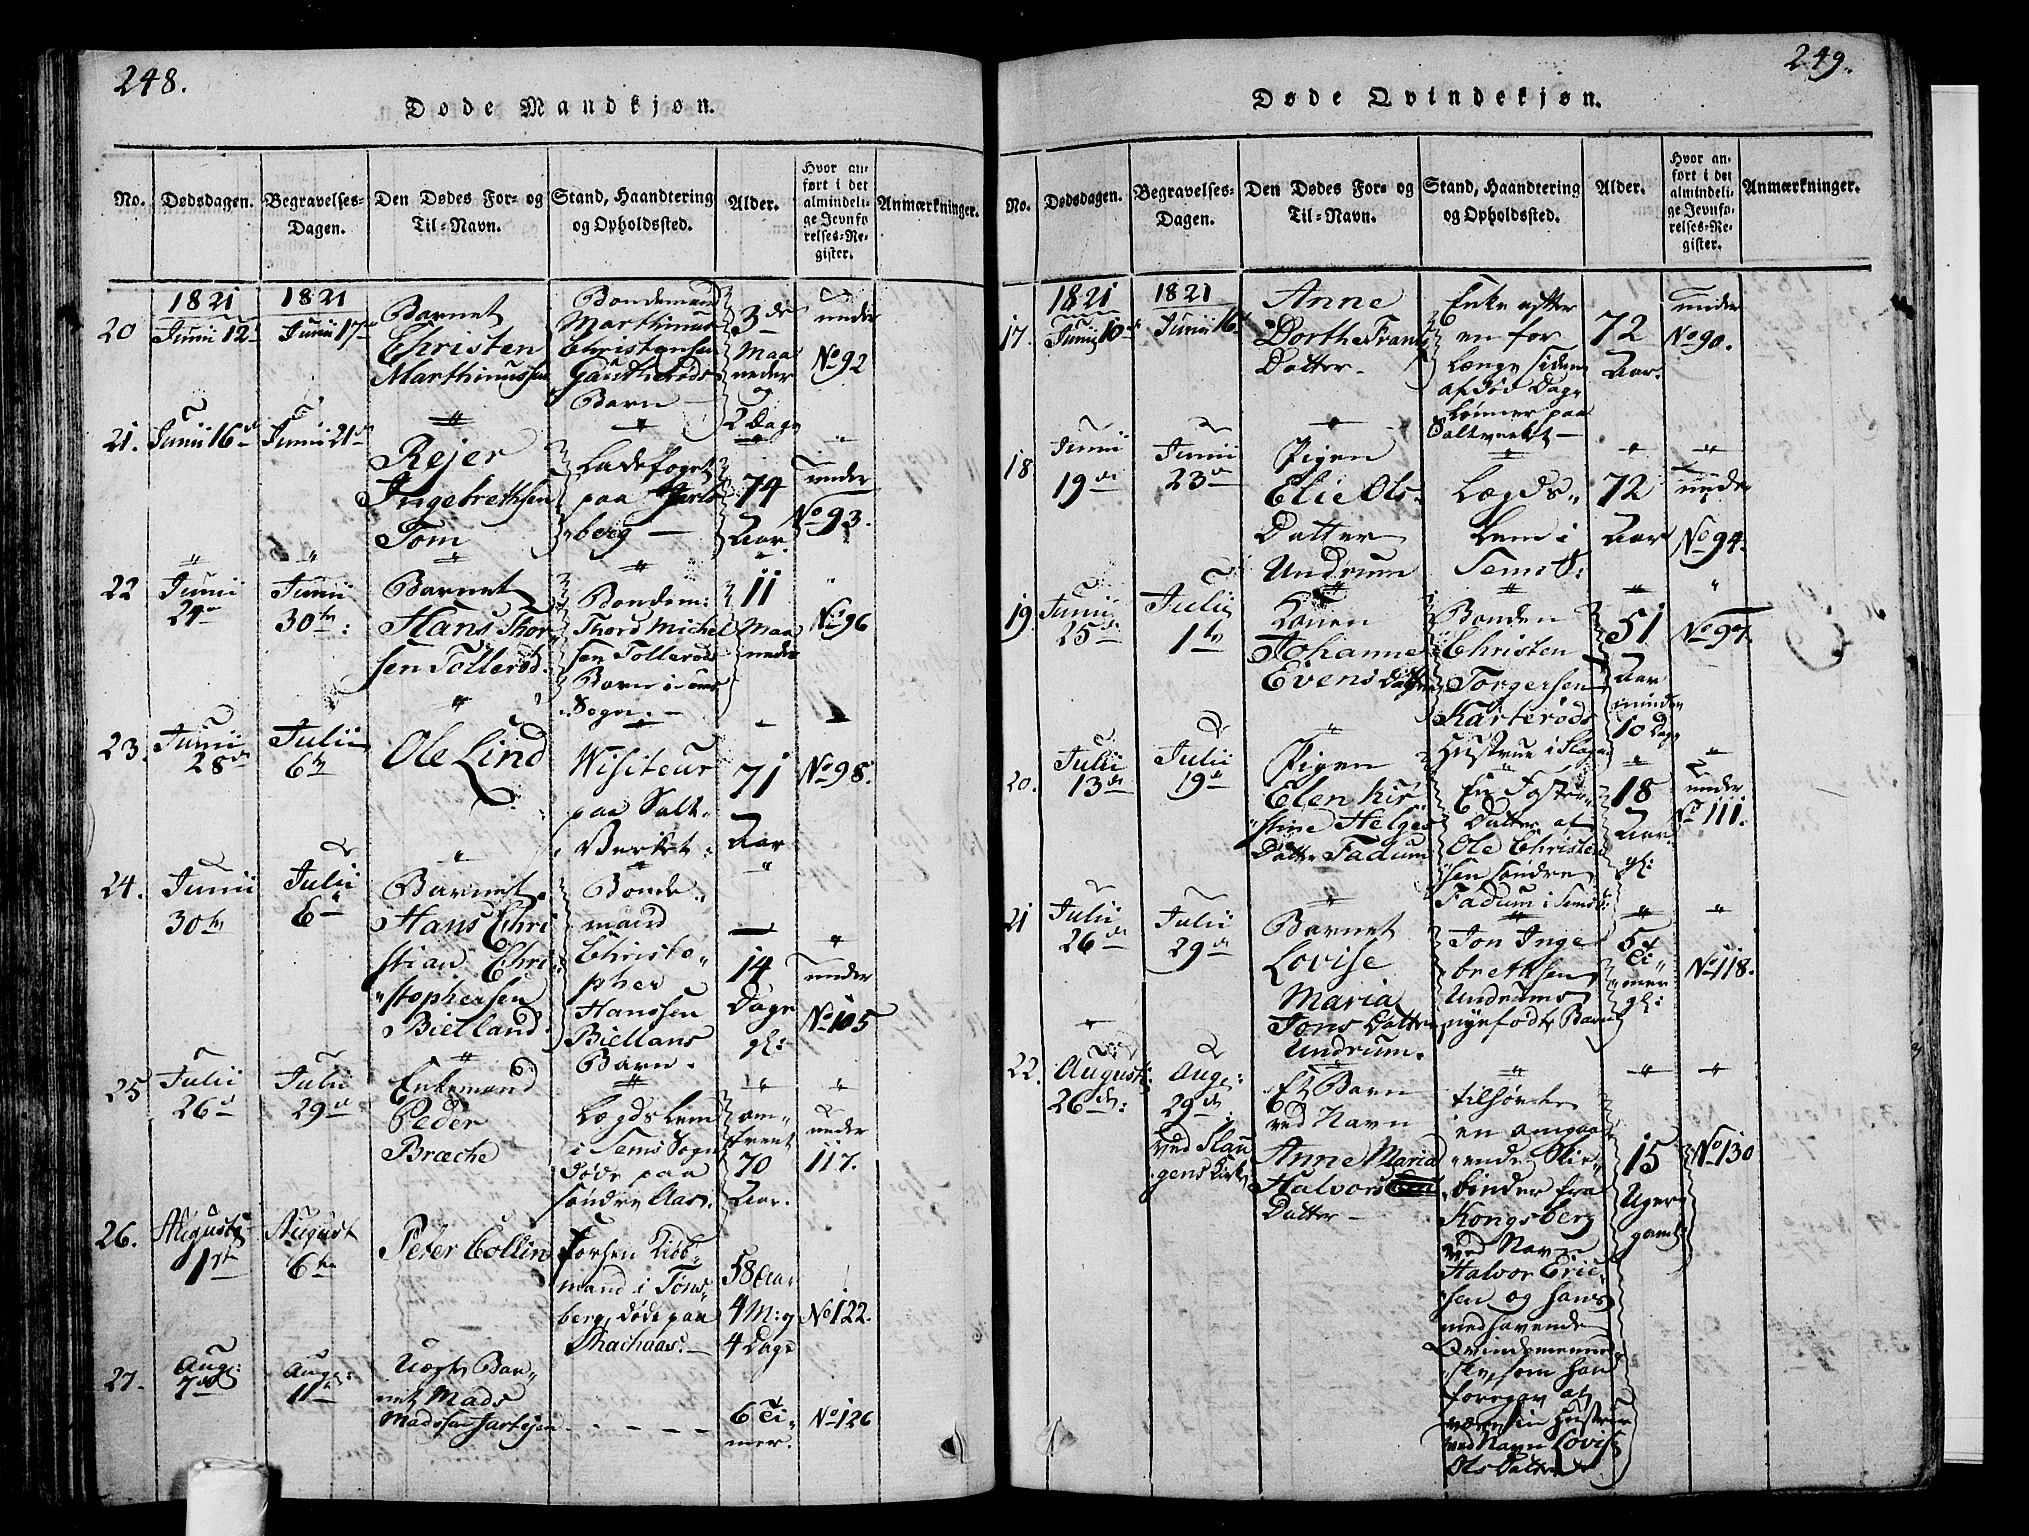 248.
Døde Mandkjøn.
No. Dødsdagen. Begravelses-Dagen. Den Dødes For- og Til-Navn. Stand, Haandtering og Opholdssted. Alder. Hvor anført i det almindelige Jevnførelses-Register. Anmærkninger.
1821 1821
20 Junii 12 Junii 17
Barnet
Christen
Marthinussen
Bondemand
Marthinus
Christensen
Barn
3de
Maaneder
og
2 Dage
under
No 92
21. Junii 16 Junii 21
Rejer
Ingebrethsen
Tom
Ladefoget
paa Jarlsberg
74
Aar
under
No 93.
22 Junii 24 Junii 30te:
Barnet
Hans Thorsen Tollerød.
Bondem:
Thord Michelsen Tollerøds
Barn i Sems
Sogn.
11
Maaneder
No 96
23. Junii 28de Julii 6te
Ole Lind
Visiteur
paa Salt-
Verket:
71
Aar
No 98.
24. Junii 30te Julii 6
Barnet
Hans Christian Christophersen
Bielland.
Bondemand
Christopher
Hanssen
Biellans
Barn.
14
Dage
gl:
under
No 105
25 Julii 26 Julii 29
Enkemand
Peder
Bræche
Lægdslem
i Sems Sogn
døde paa
søndre Aas.
omtrent
70
Aar.
under
117.
26. Augusti 1st August 6te
Peter Collin
Forhen Kiøbmand i Tønsberg, døde paa
58 Aar
4 M: og
4 Dage
No 122.
27. Aug: 7de Aug: 11te
Uægte Barnet Mads
Madssen
6 Timer.
No 126
249.
Døde Qvindekjøn.
No. Dødsdagen. Begravelses-Dagen. Den Dødes For- og Til-Navn. Stand, Haandtering og Opholdssted. Alder. Hvor anført i det almindelige Jevnførelses-Register. Anmærkninger.
1821 1821
17. Junii 10de Junii 16
Anne
Dorthe Frans
Datter
Enke efter
en for
længe siden
afdød Dag-
lønner paa
Saltverket
72
Aar.
under
No 90.
18 Junii 19de Junii 23de
Pigen
Elie Ols-
Datter
Undrum
Lægds-
Lem i
Sems S:
72
Aar
under
No 94.
19. Junii 25de Julii 1te
Konen
Johanne
Evens Datter
Bonden
Christen
Torgersen
Karterøds
Hustrue i Slagen
51
Aar
minder
10 Dage
No 97.
20. Julii 13de Julii 19de
Pigen
Elen Kirstine Helges
Datter Fadum
En Foster-
Datter af
Ole Christensen søndre
Fadum i Sems S:
18
Aar
gl:
under
No 111.
21 Julii 26de Julii 29de
Barnet
Lovise
Maria
Jons Datter
Undrum.
Jon Ingebrethsen
Undrums
nyefødte Barn
5
Timer
gl:
No 118.
22. Augusti 26de: Aug: 29de
ved Slaugens Kirke
Et Barn
ved Navn
Anne Maria
Halvors
Datter
tilhørte
en omgaaende
binder fra
Kongsberg
ved Navn
Halvor Ericsen og hans
medhavende
Qvindemenneske, som han
foregav at
være sin Hustrue
ved Navn Lovise
Ols Datter
15
Uger
gaml:
No 130